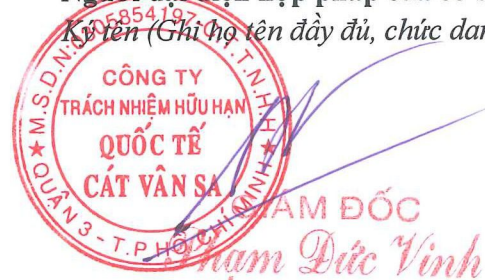 Ký tên (Ghi họ tên đầy đủ, chức dan
M.S.D.N:0305854191-C.T.T.N.H.H
CÔNG TY
TRÁCH NHIỆM HỮU HẠN
QUỐC TẾ
CÁT VÂN SA
QUẬN 3 - T.P HỒ CHÍ MINH
GIÁM ĐỐC
Phạm Đức Vinh